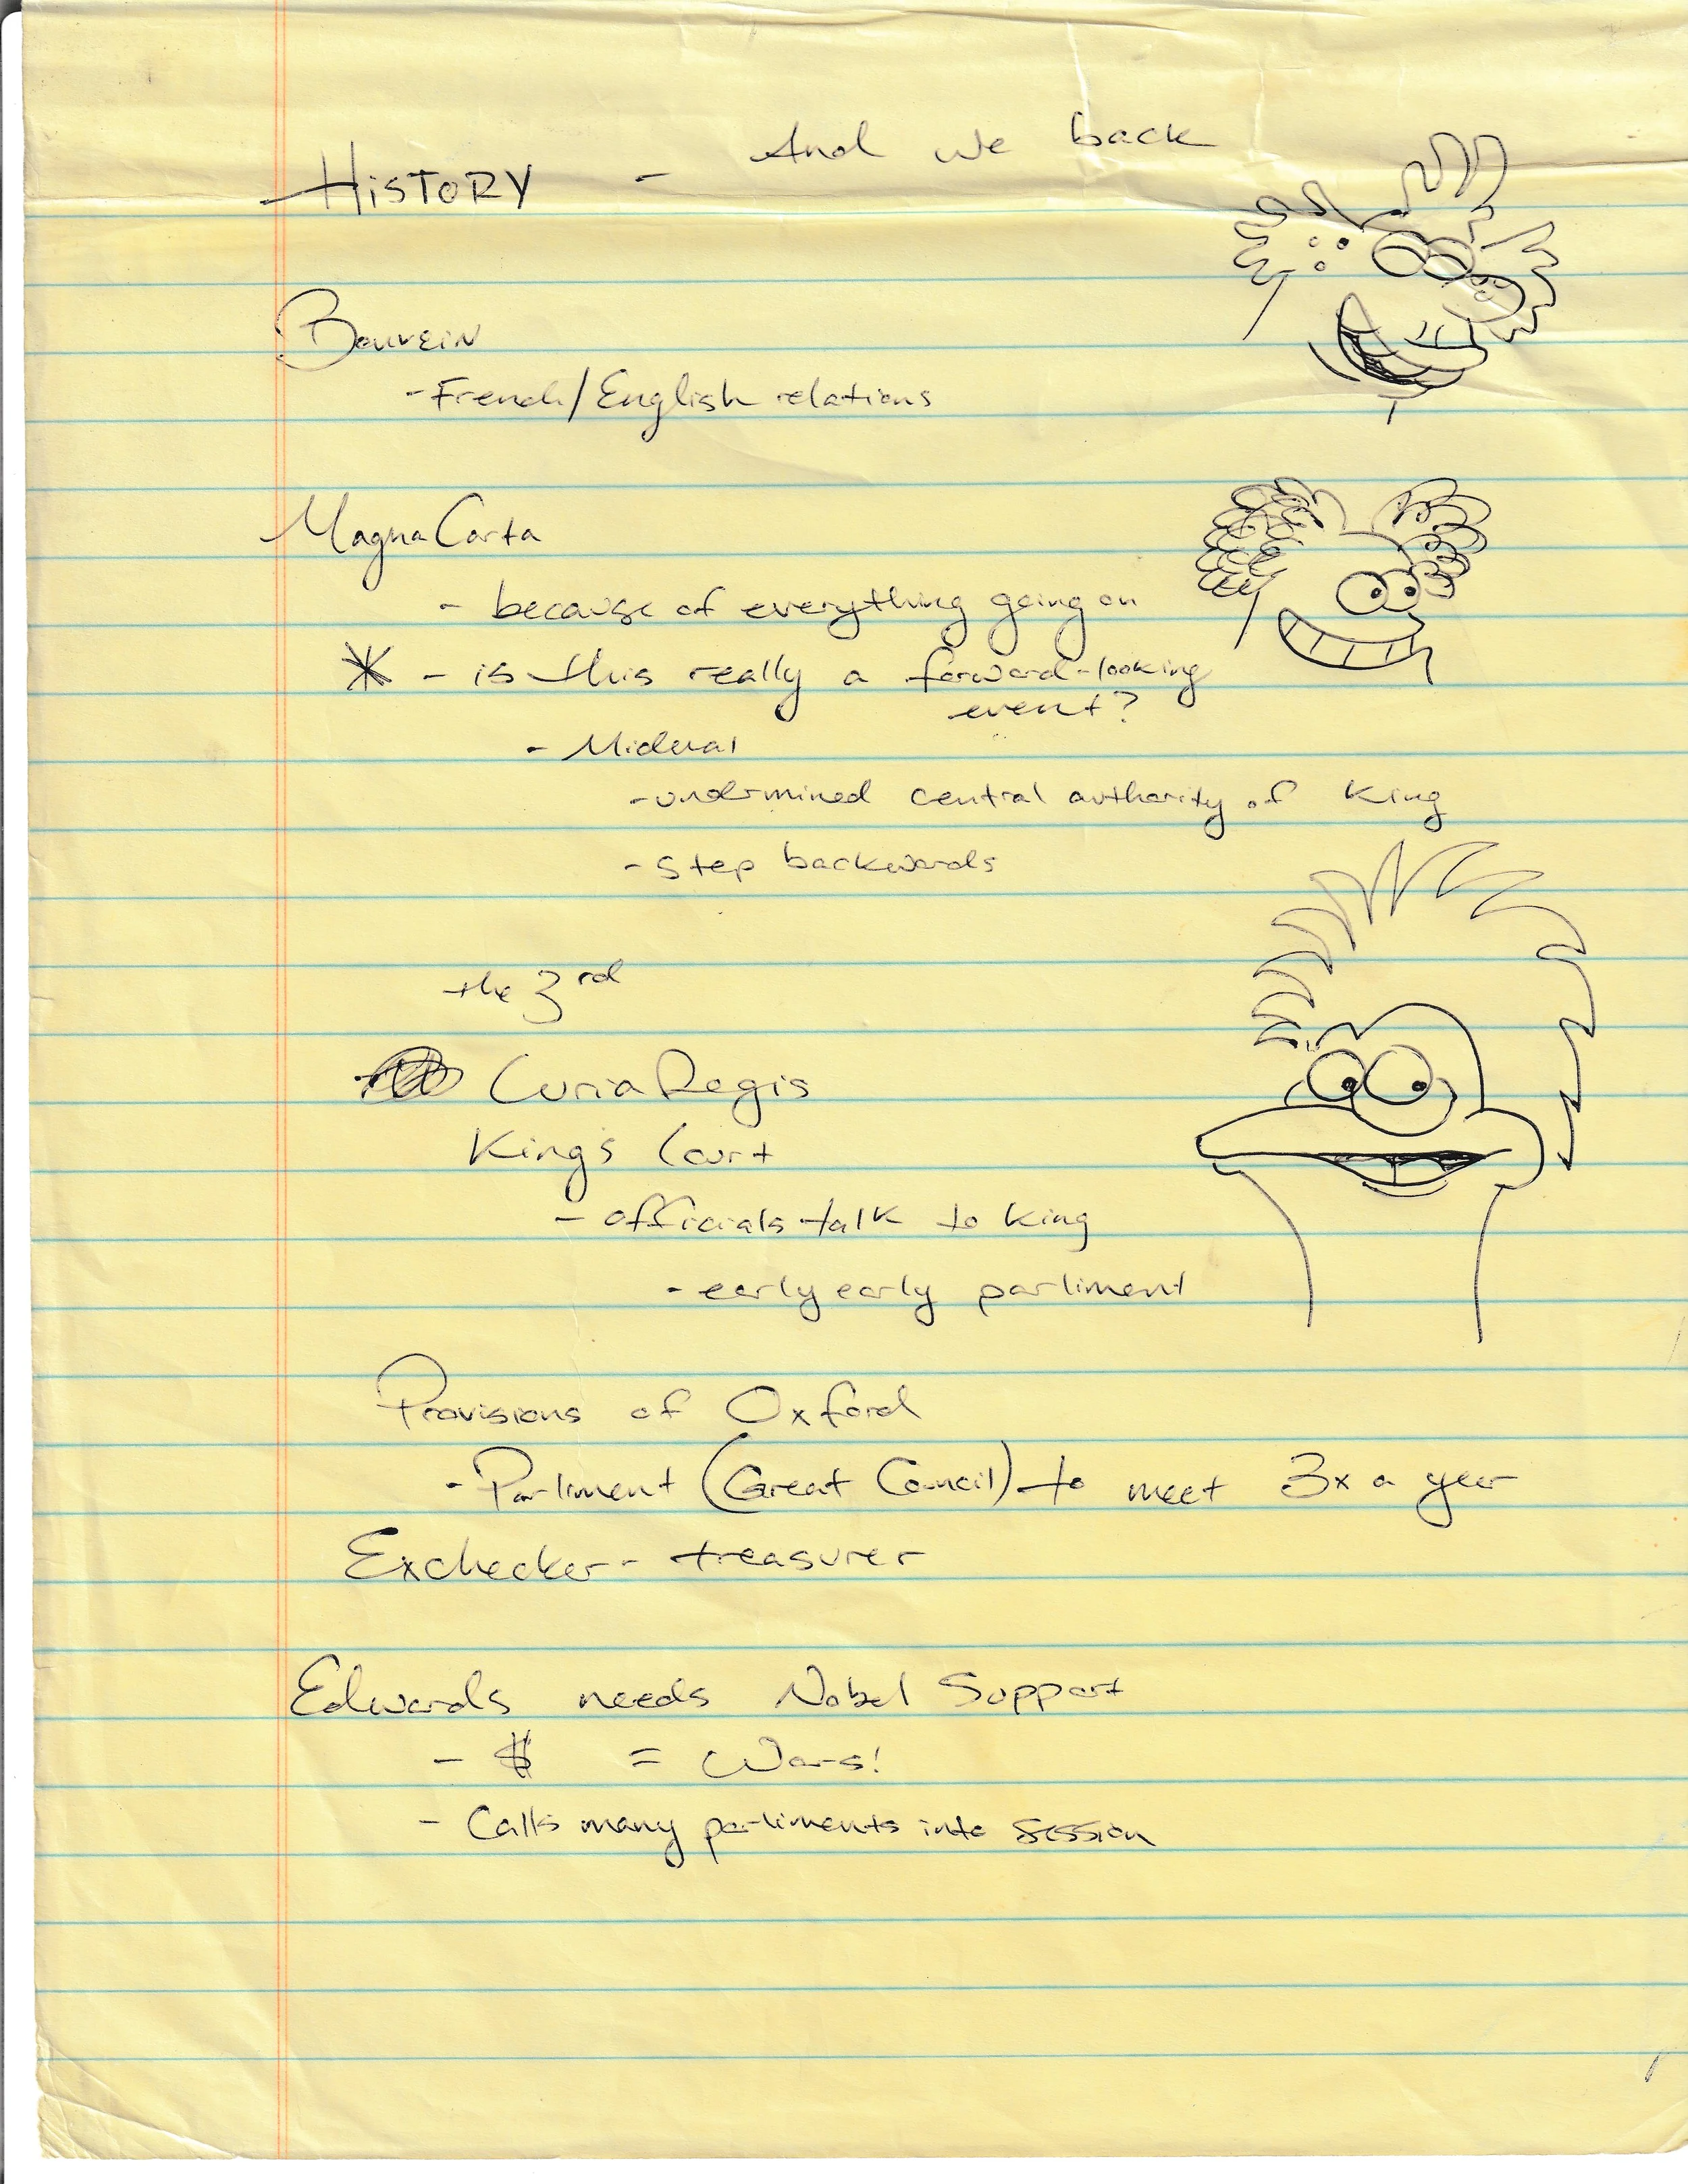 HISTORY - And we back
Bouvein
- French/English relations
Magna Carta
- because of everything going on
* - is this really a forward-looking
event?
- Mideval
- undermined central authority of king
- step backwards
the 3rd
Curia Regis
King's Court
- officials talk to king
- early early parliment
Provisions of Oxford
- Parliment (Great Council) to meet 3x a year
Exchecker - treasurer
Edwards needs Nobel Support
- $ = Wars!
- Calls many parliments into session